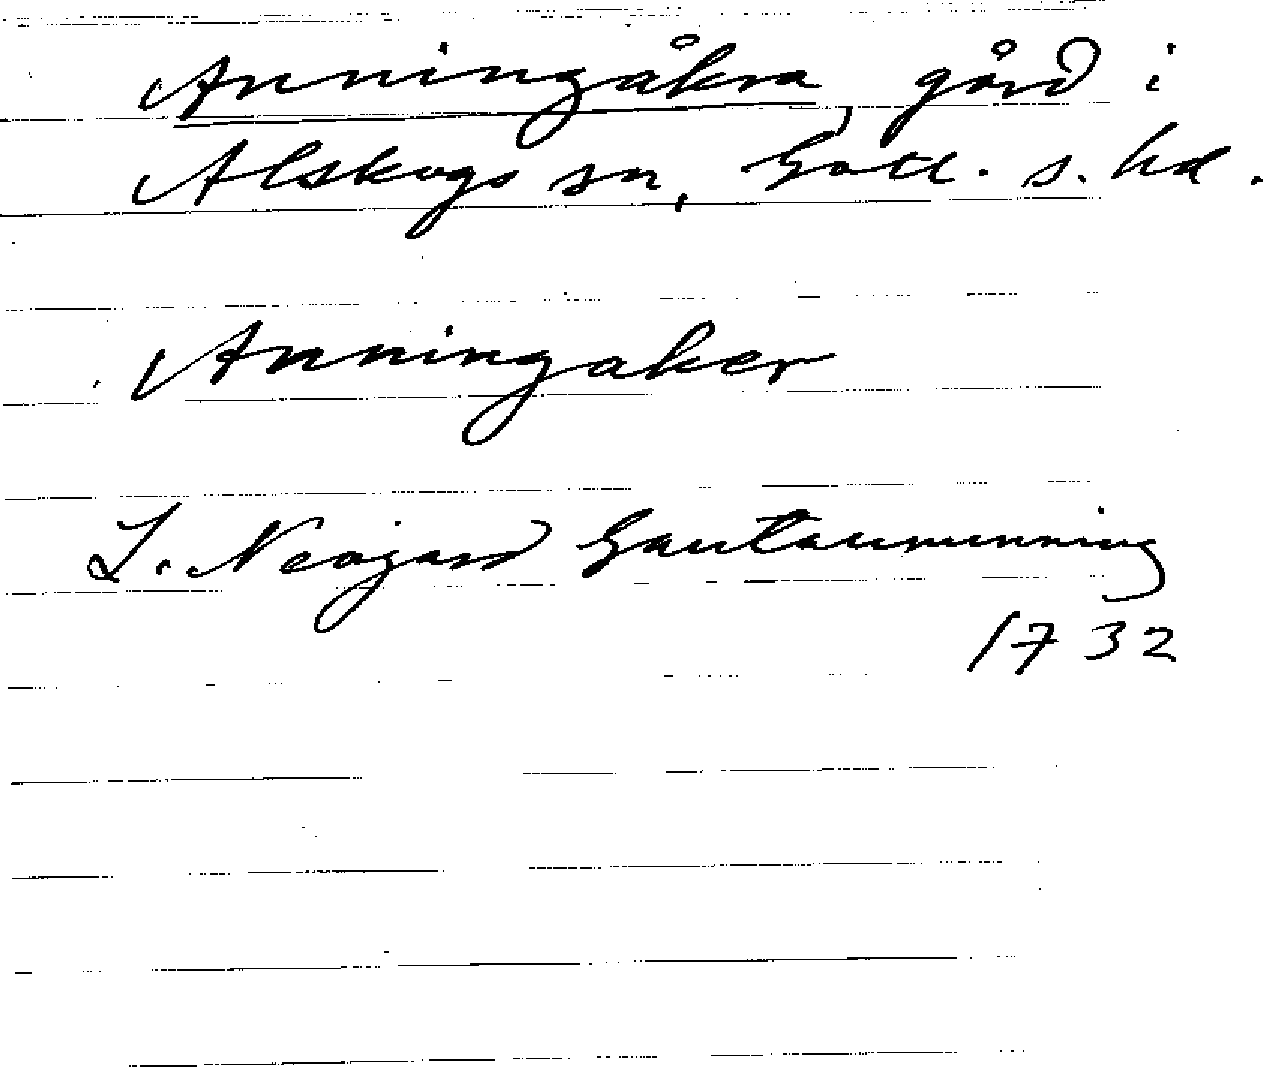 Anningåkra, gård i
Alskogs sn, Gotl. s. hd.
Anningaker
J. Neogard Gautaurunning
1732